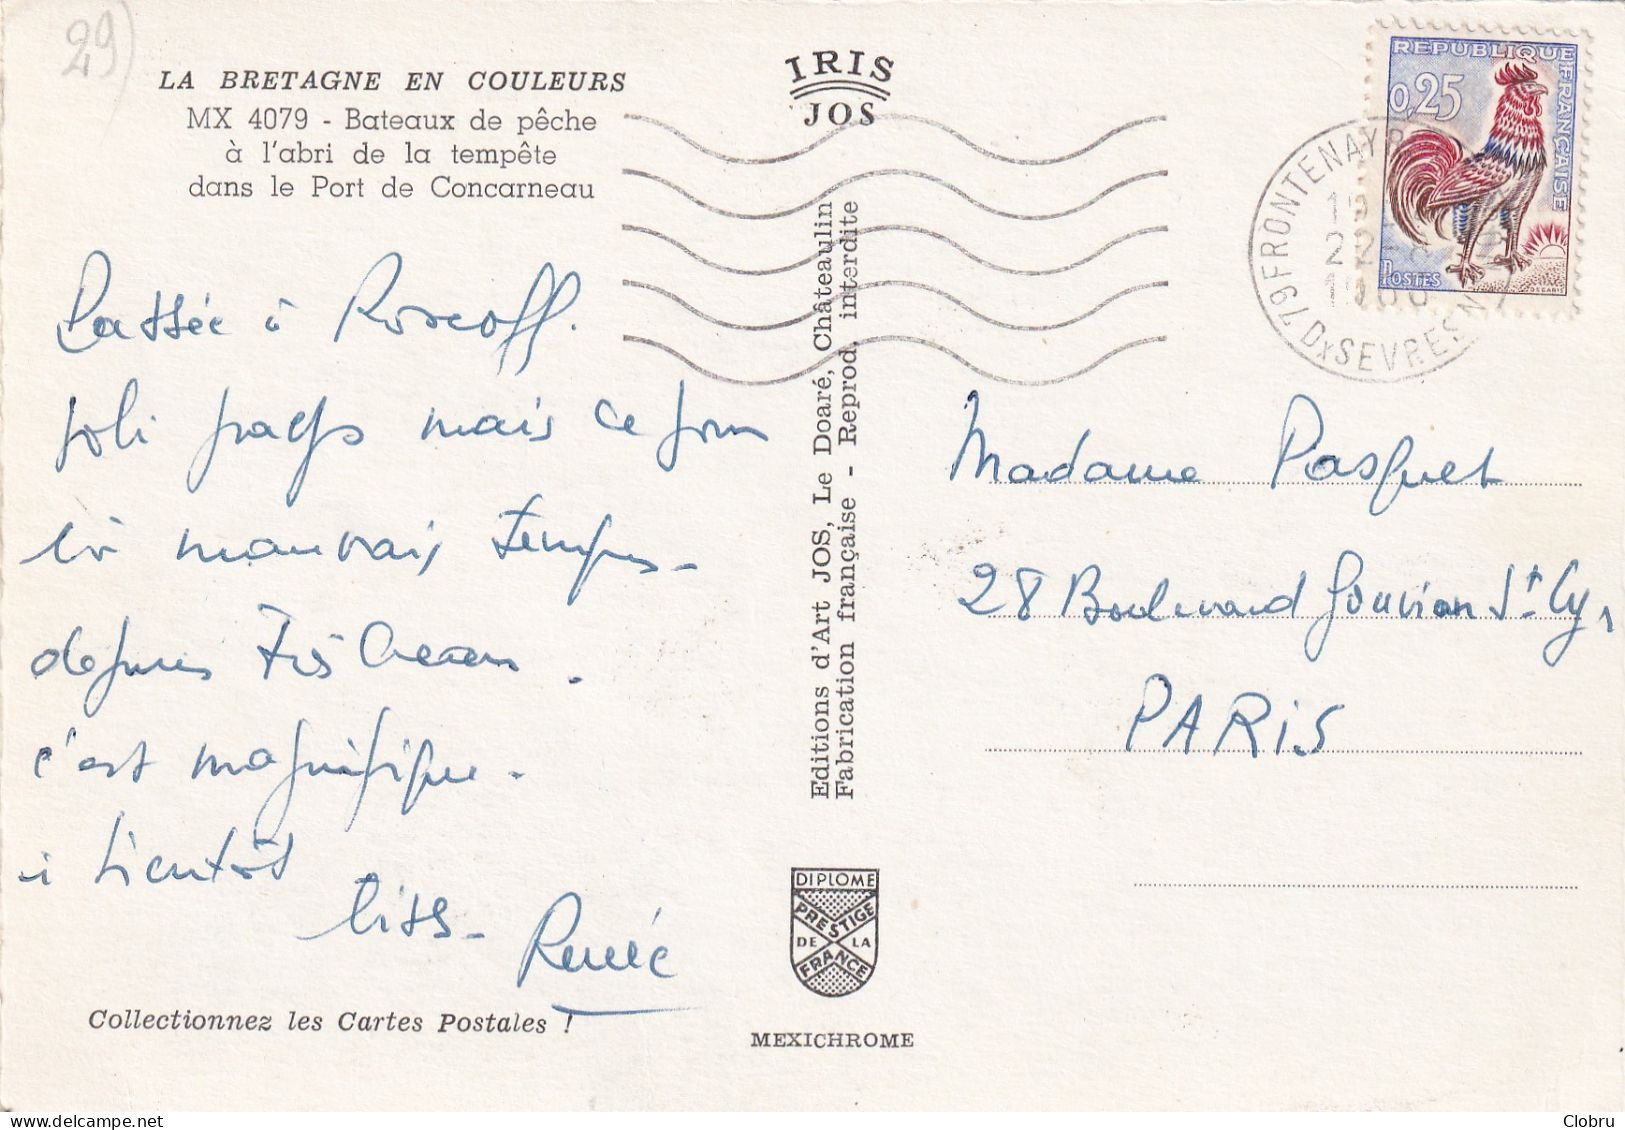 29)
LA BRETAGNE EN COULEURS
MX 4079 - Bateaux de pêche
à l'abri de la tempête
dans le Port de Concarneau
IRIS
JOS
REPUBLIQUE FRANÇAISE
0,25
POSTES
79 FRONTENAY R
DX SEVRES
Passée à Roscoff.
joli pays mais ce jour
là mauvais temps -
depuis très beau.
c'est magnifique.
à bientôt
Renée
Editions d'Art JOS, Le Doaré, Châteaulin
Fabrication française - Reprod. interdite
Madame Pasquet
28 Boulevard Gouvion St Cyr
PARiS
DIPLOME
PRESTIGE
DE LA
FRANCE
Collectionnez les Cartes Postales !
MEXICHROME
Clobru